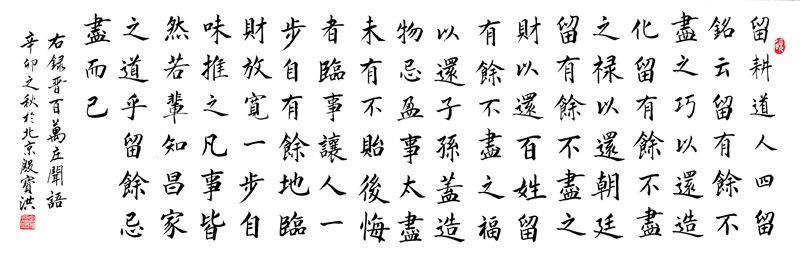 留耕道人四留
銘云留有餘不
盡之巧以還造
化留有餘不盡
之禄以還朝廷
留有餘不盡之
財以還百姓留
有餘不盡之福
以還子孫蓋造
物忌盈事太盡
未有不貽後悔
者臨事讓人一
步自有餘地臨
財放寬一步自
味推之凡事皆
然若輩知昌家
之道乎留餘忌
盡而已
右録晋百萬庄聞語
辛卯之秋於北京殷寳洪